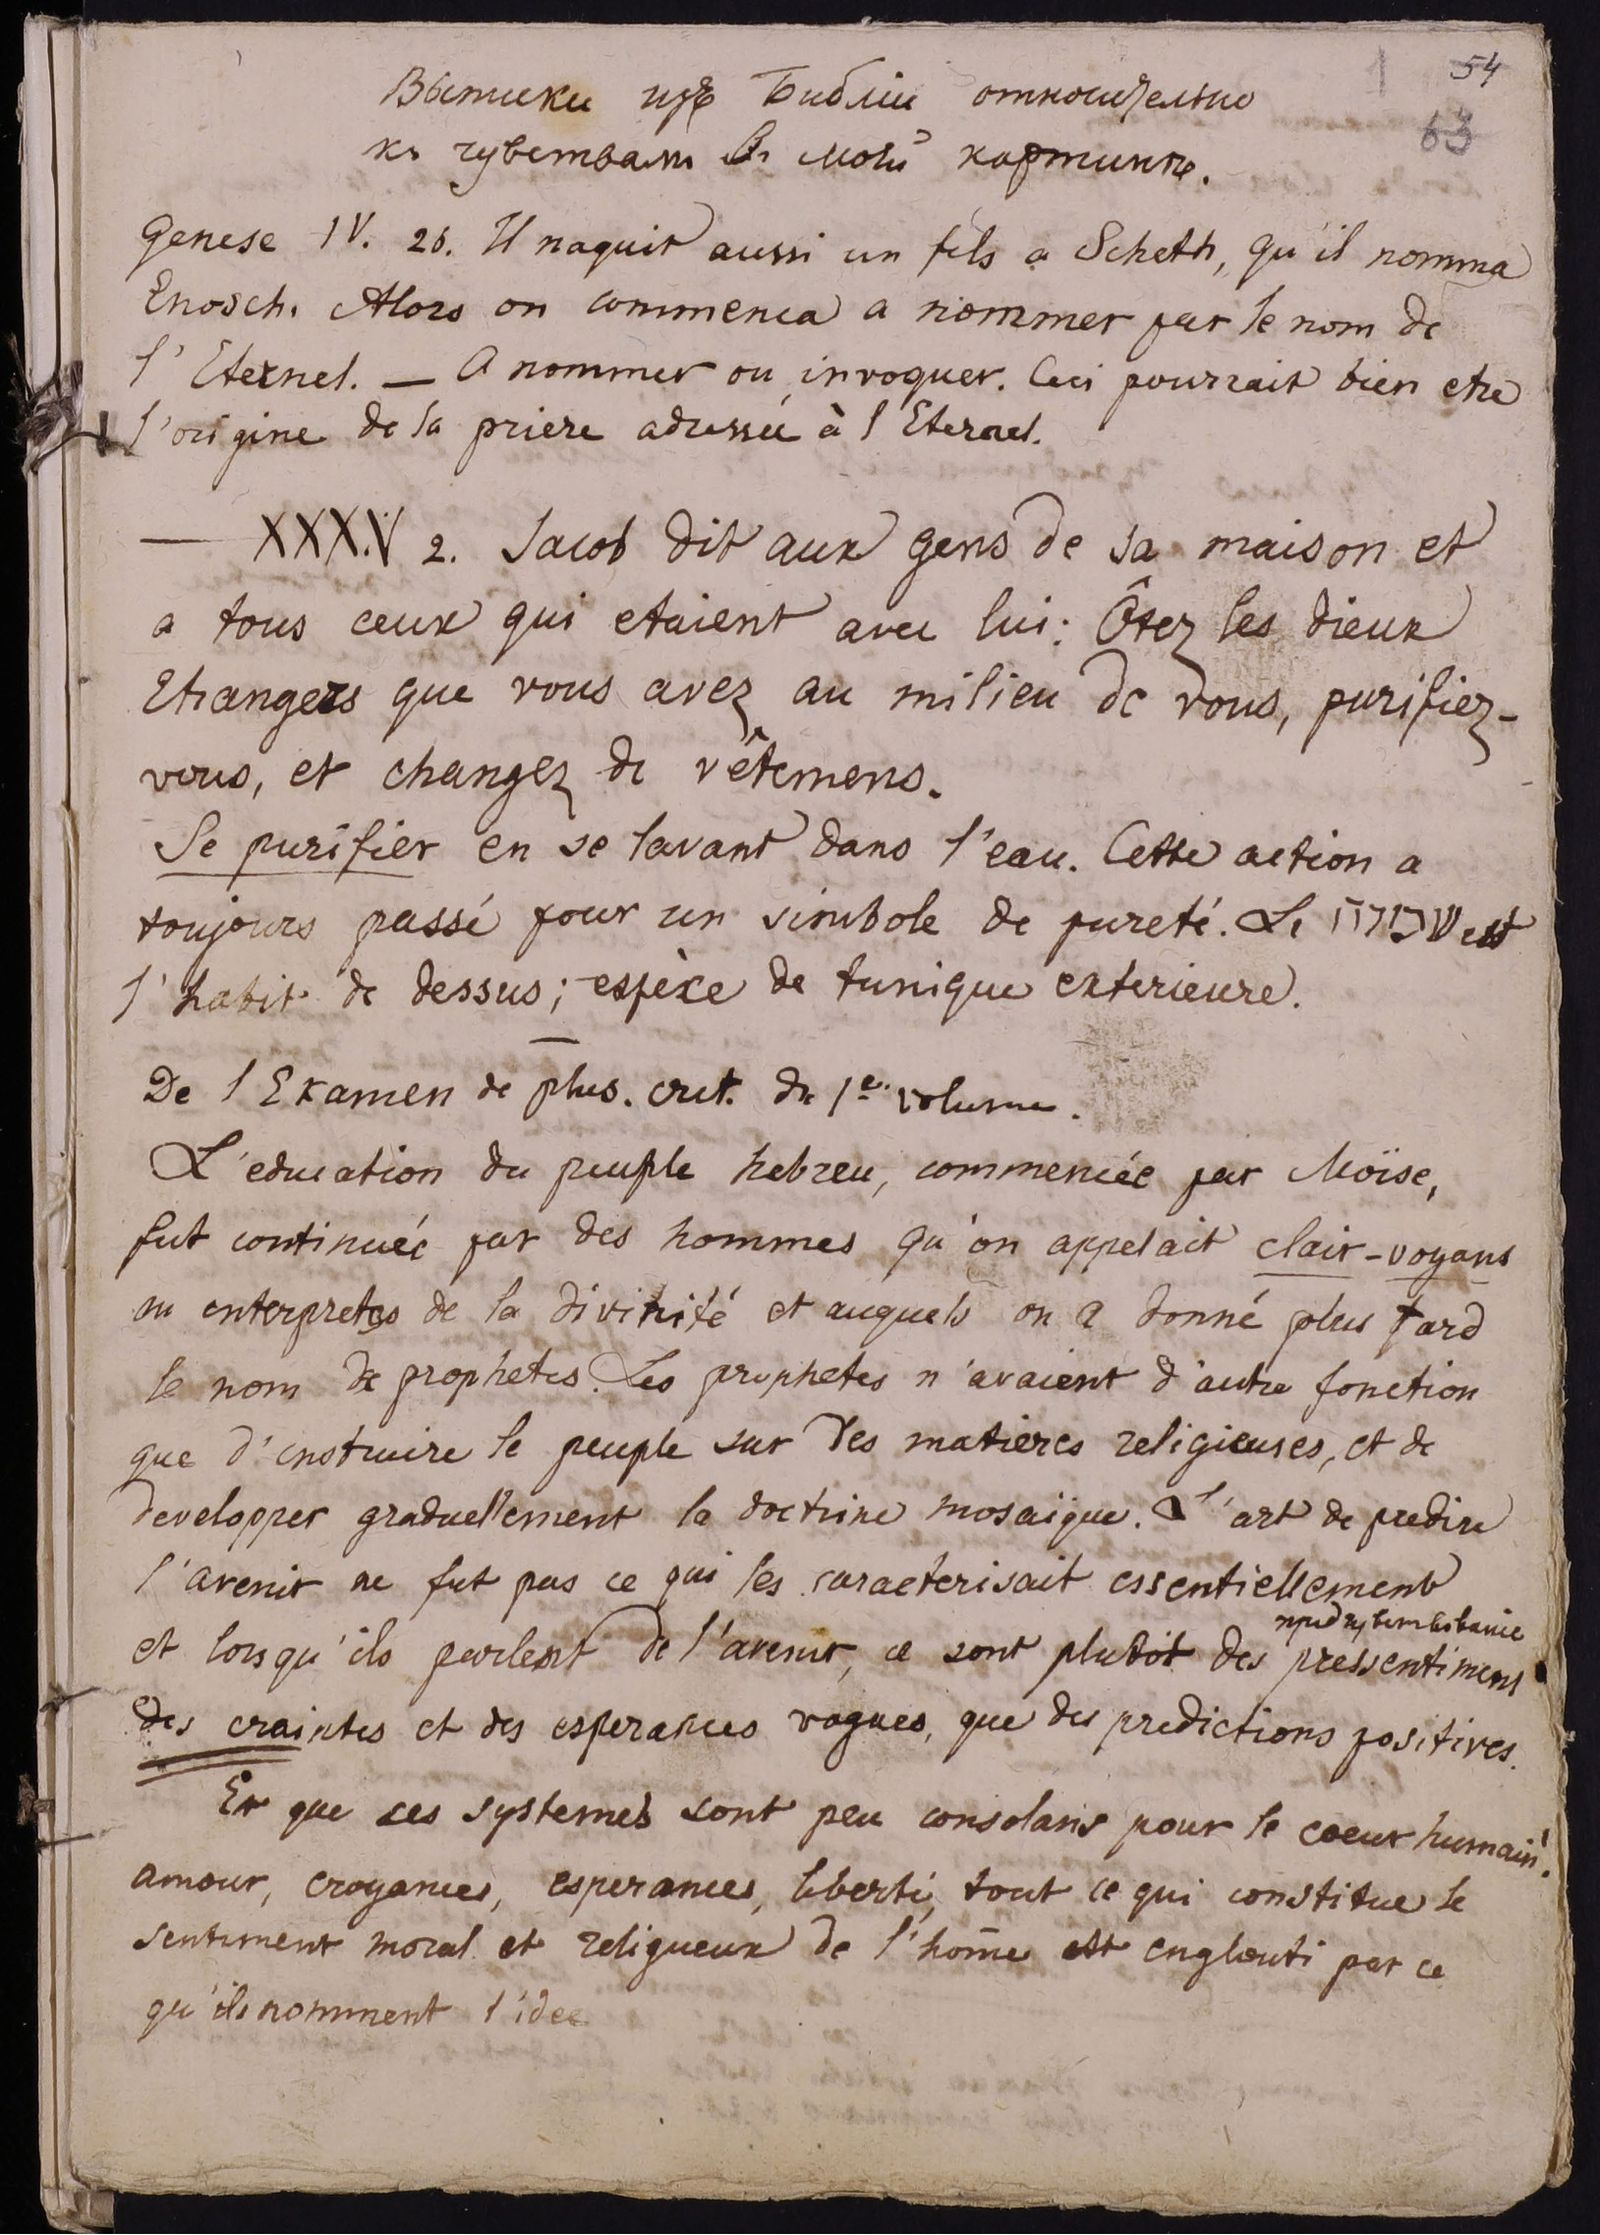 54
63
Выписки изъ Библiи относительно
къ чувствамъ въ моей картинѣ.
Genese IV. 26. Il naquit aussi un fils a Scheth, qu'il nomma
Enosch. Alors on commenca a nommer par le nom de
l'Eternel. — A nommer ou invoquer. Ceci pourrait bien etre
l'origine de la priere adressée à l'Eternel.
— XXXV 2. Jacob dit aux gens de sa maison et
a tous ceux qui etaient avec lui: Ôtez les dieux
Etrangers que vous avez au milieu de vous, purifiez-
vous, et changez de vêtemens.
Se purifier en se lavant dans l'eau. Cette action a
toujours passé pour un simbole de pureté. Le est
l'habit de dessus; espèce de tunique exterieure.
De l'Examen de plus. crit. du 1e. volume.
L'education du peuple hebreu, commencée par Moïse,
fut continuée par des hommes qu'on appelait clair-voyans
ou enterpretes de la divinité et auquels on a donné plus tard
le nom de prophetes. Les prophetes n'avaient d'autre fonction
que d'enstruire le peuple sur des matières religieuses, et de
developper graduellement la doctrine mosaïque. L'art de predire
l'avenir ne fut pas ce qui les caracterisait essentiellement
предчувствованiе
et lorsqu'ils parlent de l'avenir, ce sont plutôt des pressentimens
des craintes et des esperances vagues, que des predictions positives.
Et que ces systemes sont peu consolans pour le coeur humain!
amour, croyances, esperances, liberté, tout ce qui constitue le
sentiment moral et religueux de l'hom̄e est englouti par ce
qu'ils nomment l'idee